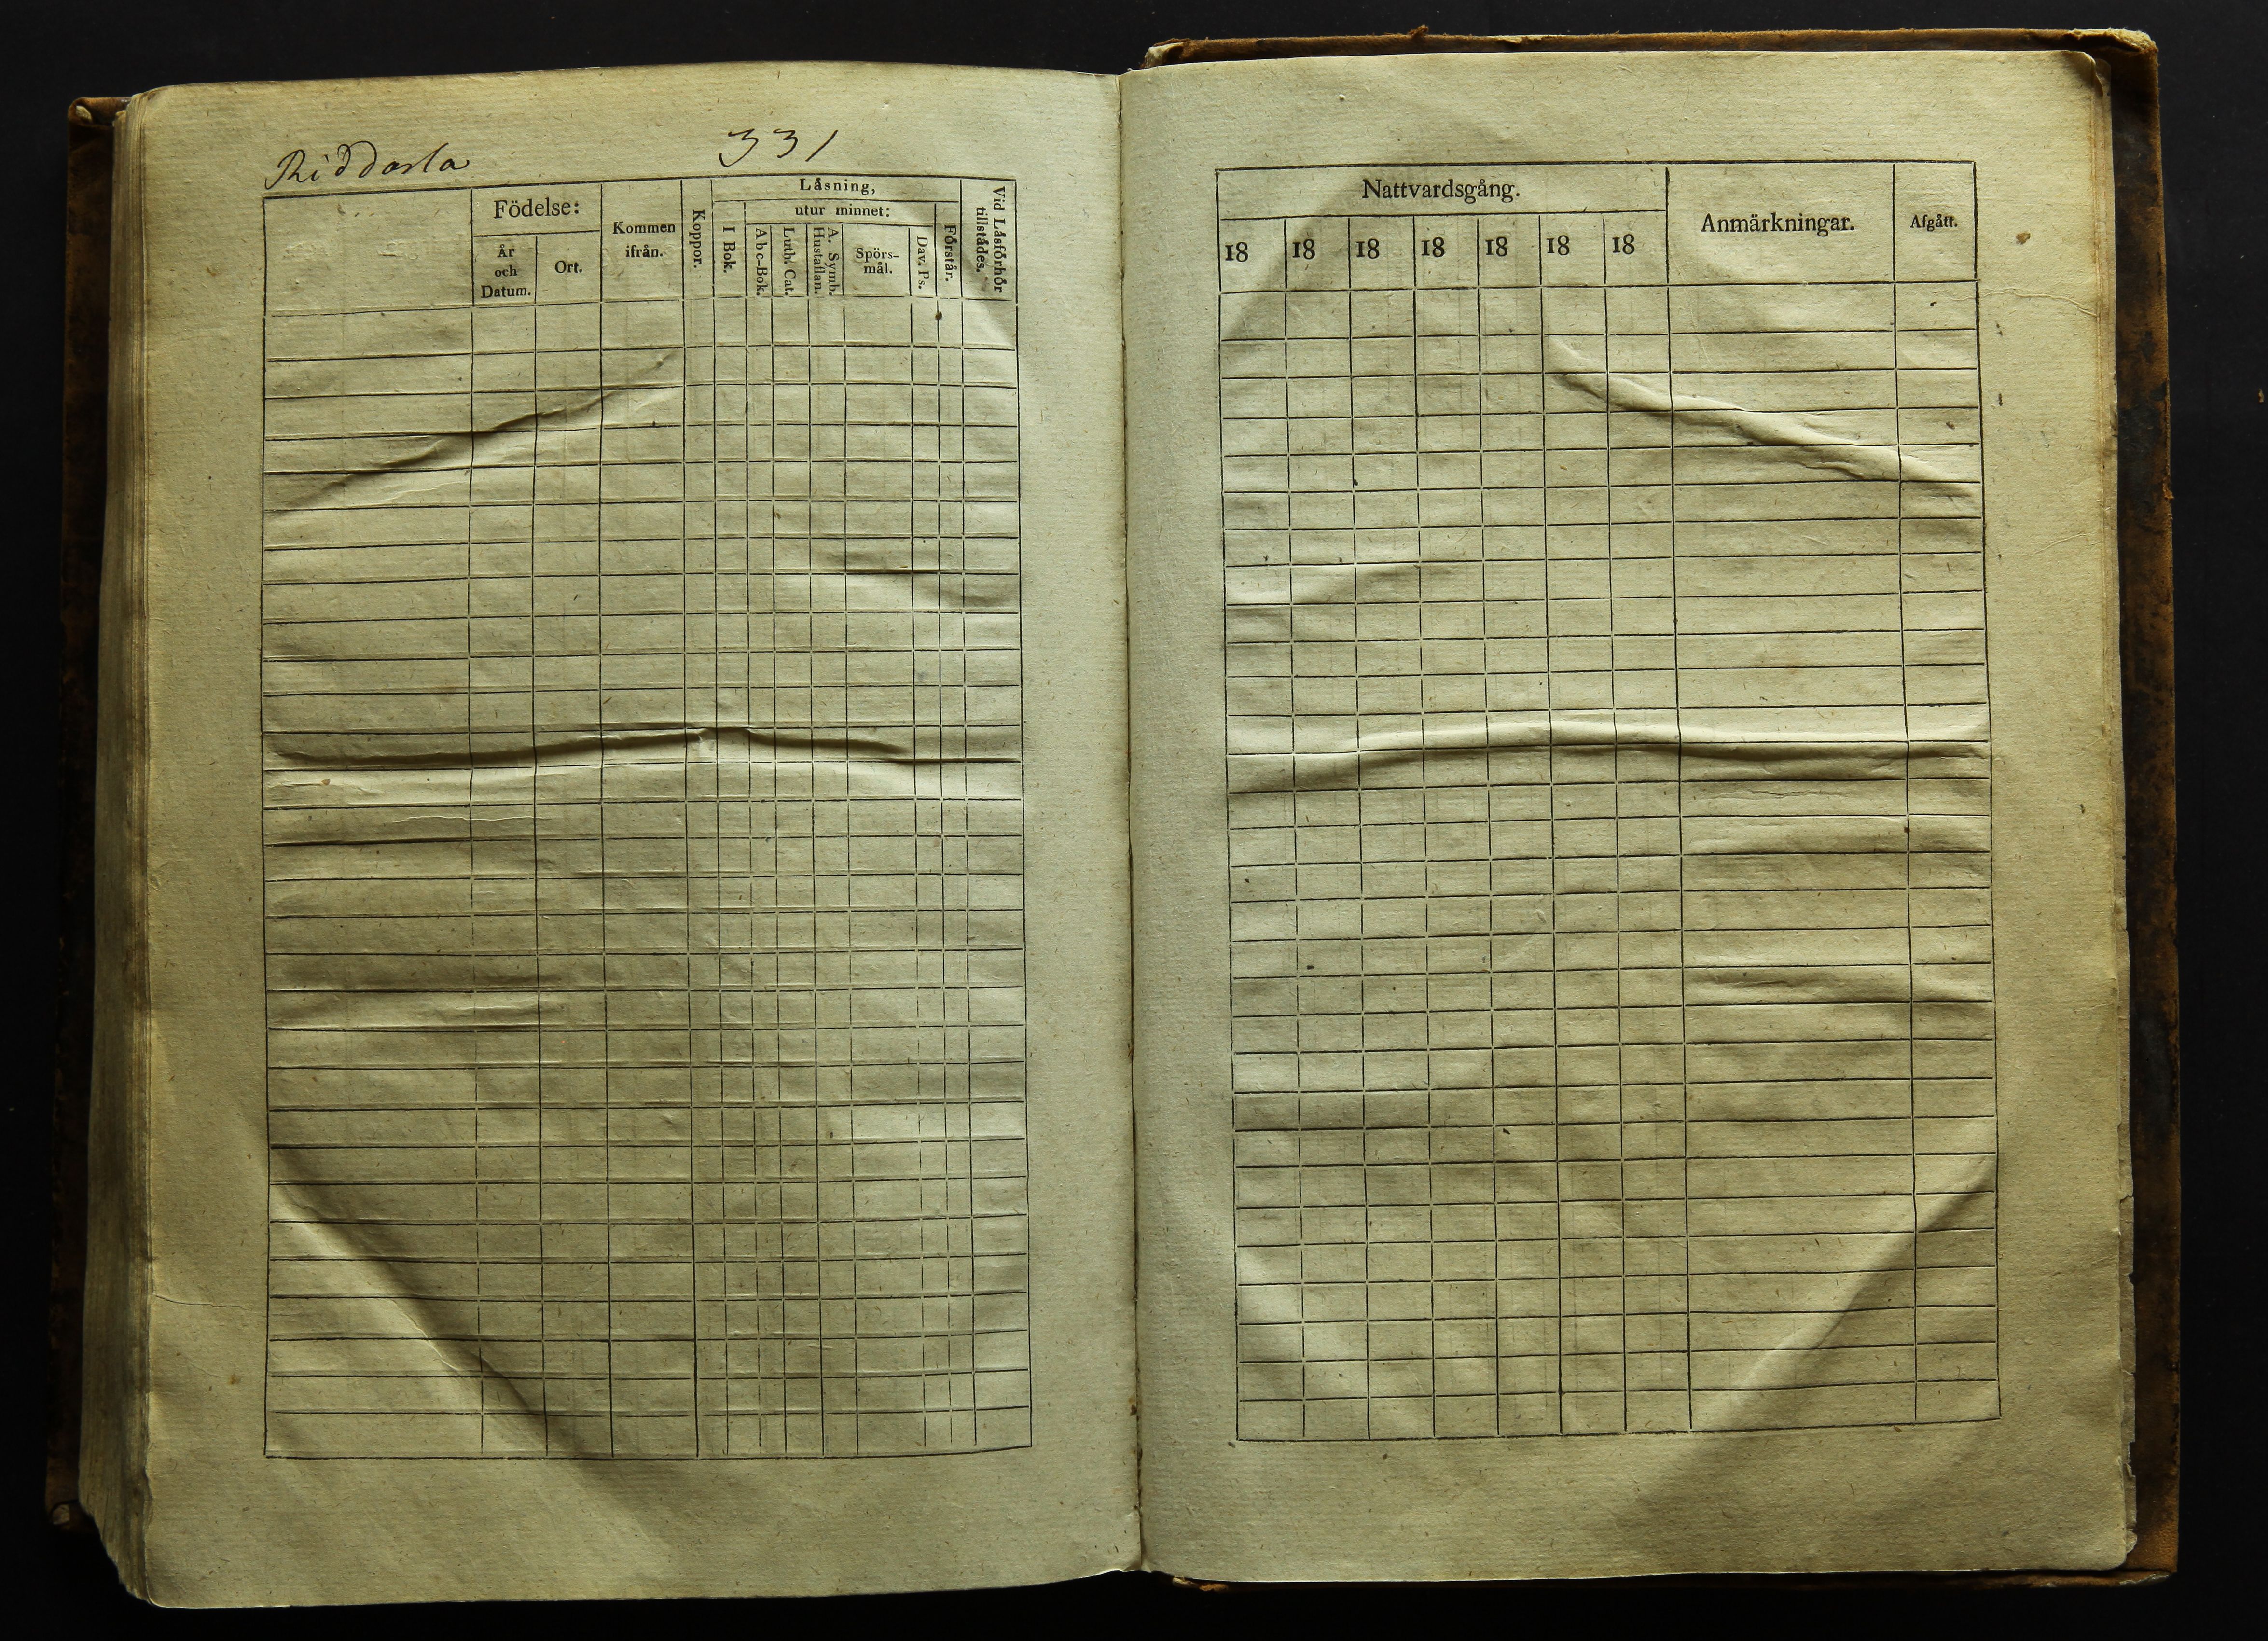 Riddarla 331
Födelse:
År och Datum.
Ort.
Kommen ifrån.
Koppor.
Låsning,
I Bok.
utur minnet:
Abc-Bok.
Luth. Cat.
A. Symb. Hustaflan.
Spörs-
mål.
Dav. Ps.
Förstår.
Vid Låsförhör tillstådes.
Nattvardsgång.
18 18 18 18 18 18 18
Anmärkningar.
Afgått.